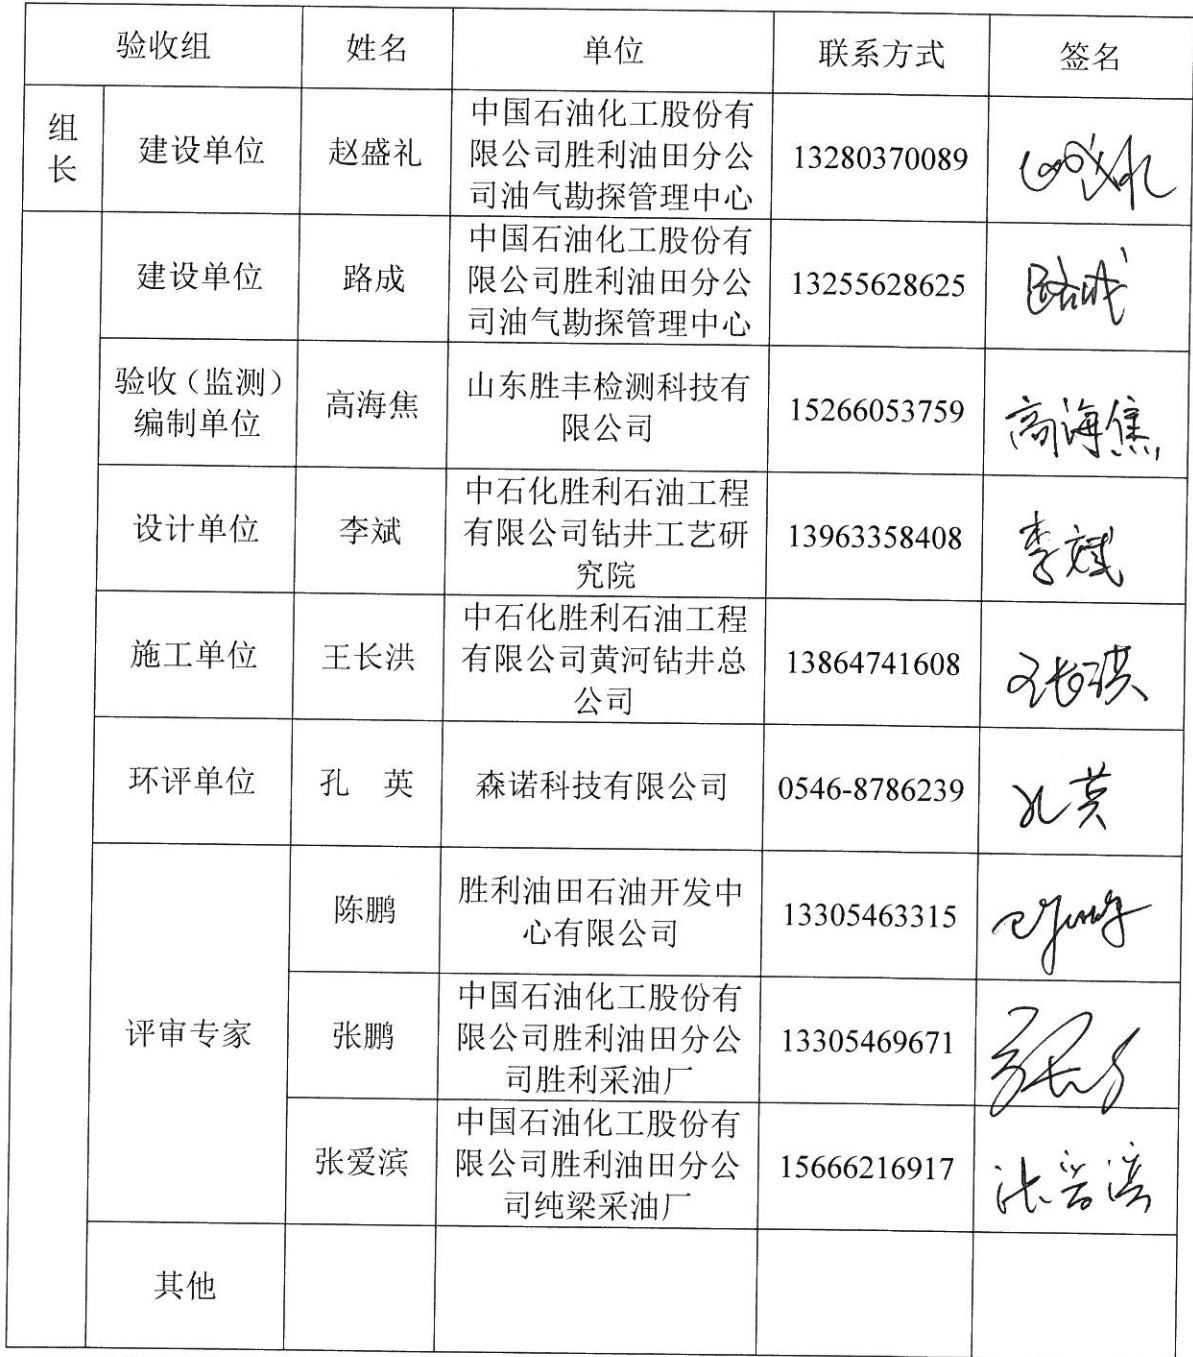 验收组 姓名 单位 联系方式 签名
组
长
建设单位 赵盛礼
中国石油化工股份有
限公司胜利油田分公
司油气勘探管理中心
13280370089
建设单位 路成
中国石油化工股份有
限公司胜利油田分公
司油气勘探管理中心
13255628625 路成
验收（监测）
编制单位
高海焦
山东胜丰检测科技有
限公司
15266053759 高海焦
设计单位 李斌
中石化胜利石油工程
有限公司钻井工艺研
究院
13963358408 李斌
施工单位 王长洪
中石化胜利石油工程
有限公司黄河钻井总
公司
13864741608 王长洪
环评单位 孔 英 森诺科技有限公司 0546-8786239 孔英
评审专家
陈鹏
胜利油田石油开发中
心有限公司
13305463315
张鹏
中国石油化工股份有
限公司胜利油田分公
司胜利采油厂
13305469671
张爱滨
中国石油化工股份有
限公司胜利油田分公
司纯梁采油厂
15666216917 张爱滨
其他